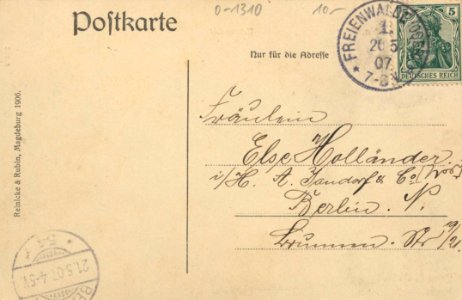 0-1310
10.-
Postkarte
Nur für die Adresse
FREIENWALDE (ODER)
1.
20 5
07.
7-8
5
DEUTSCHES REICH
Fräulein
Else Holländer
i/H. A. Jandorf & Co.
Berlin. N.
Brunnen Str 19/21
Reinicke & Rubin, Magdeburg 1906.
21.5.07. 4-5V